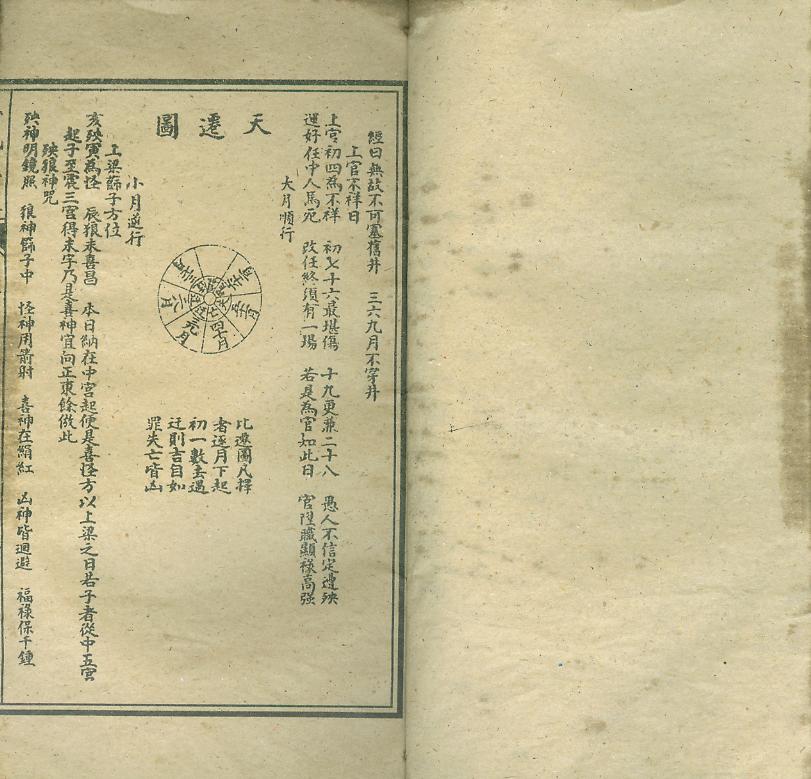 經曰無故不可塞舊井　三六九月不穿井
上官不祥日
上官初四為不祥　初七十六最堪傷　十九更兼二十八　愚人不信定遭殃
運好任中人馬死　改任終須有一場　若是為官如此日　官陞職顯祿高強
大月順行
天遷圖
四七月
元月
六月
比遷圖凡擇
者逐月下起
初一數去遇
迁則吉自如
罪失亡皆凶
小月逆行
上梁篩子方位
亥殃寅為怪　辰狼未喜昌　本日納在中宮起便是喜怪方以上梁之日若子者從中五宮
起子至震三宮得未字乃是喜神宜向正東餘倣此
殃狼神咒
殃神明鏡照　狼神篩子中　怪神用箭射　喜神在絹紅　凶神皆迴避　福祿保千鍾